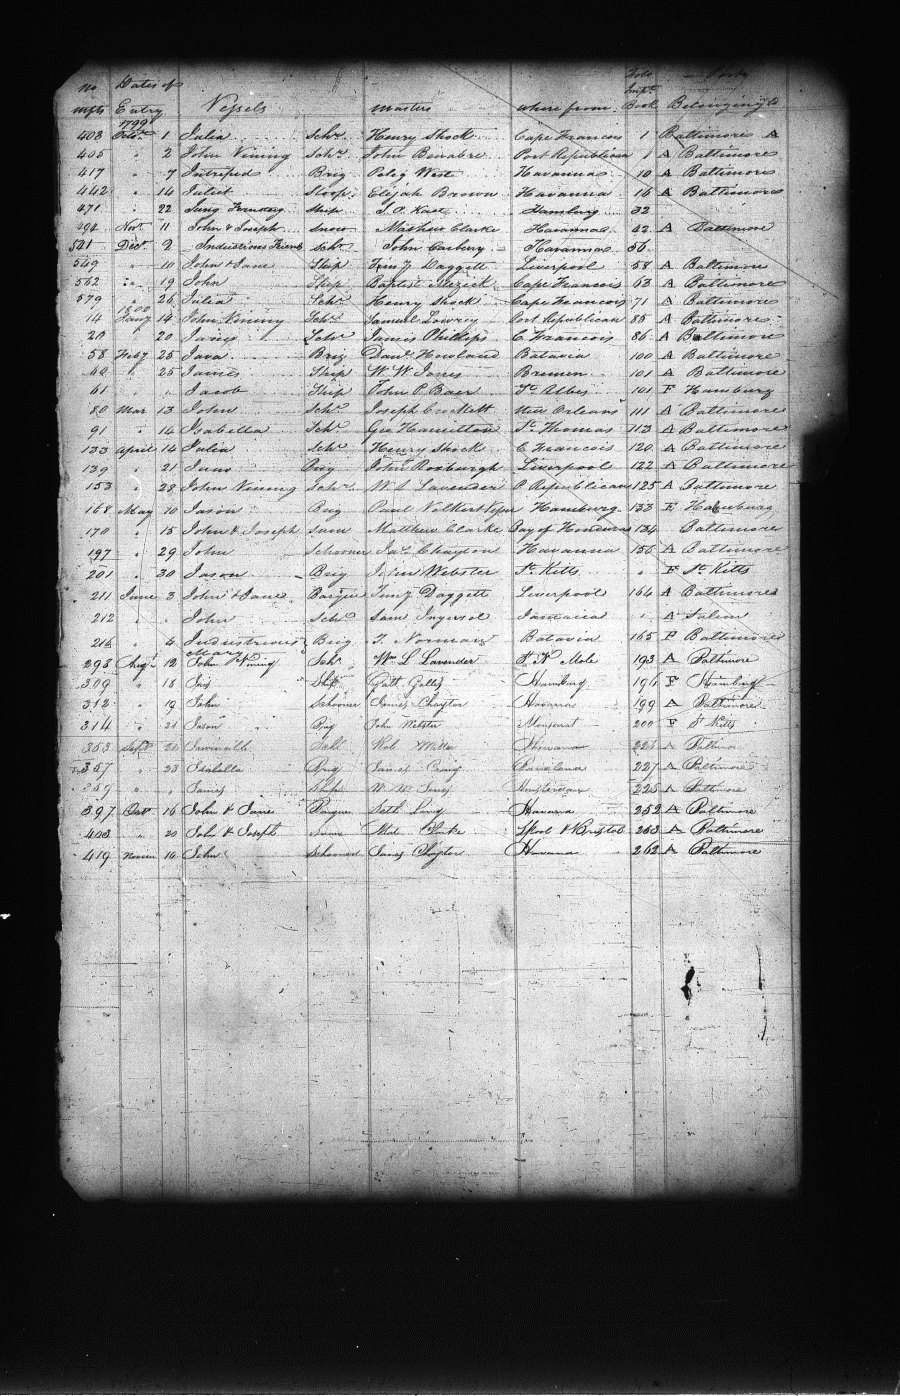 no Dates of Folo Ports
mfts Entry Vessels Masters where from Impt Book Belonging to
1799
403 Octr 1 Julia Schr Henry Shock Cape Francois 1 Baltimore A
405 " 2 John Vining Schr John Benabre Port Republican 1 A Baltimore
417 " 7 Intrepid Brig Peleg West Havanna 10 A Baltimore
442 " 14 Juliet Sloop Elijah Brown Havanna 16 A Baltimore
471 22 Jung Ship J. O. Kast Hamburg 32
494 Novr 11 John & Joseph Snow Mathew Clarke Havanna 42 A Baltimore
521 Decr 2 Industrious Friends Schr John Carberry Havanna 56
549 " 10 John & Jane Ship Daggett Liverpool 58 A Baltimore
562 " 19 John Ship Baptist Mezick Cape Francois 63 A Baltimore
579 " 26 Julia Schr Henry Shock Cape Francois 71 A Baltimore
1800
14 Jany 14 John Vining Schr Samuel Lowry Port Republican 85 A Baltimore
20 20 Juno Schr James Phillips C Francois 86 A Baltimore
58 Feby 25 Java Brig Danl Howland Batavia 100 A Baltimore
60 " 25 James Ship W W Jones Bremen 101 A Baltimore
61 " " Jacob Ship John P. Baer St Albes 101 F Hamburg
80 Mar 13 John Schr Joseph Crockett New Orleans 111 A Baltimore
91 " 14 Isabella Schr Geo Hamilton St Thomas 113 A Baltimore
133 April 14 Julia Schr Henry Shock C Francois 120 A Baltimore
139 " 21 Juno Brig John Roxburgh Liverpool 122 A Baltimore
153 " 28 John Vining Schr W L Lavender P Republican 125 A Baltimore
168 May 10 Jason Brig Paul Hamburg 133 F Hamburg
170 " 15 John & Joseph Snow Matthew Clarke Bay of Honduras 134 Baltimore
197 " 29 John Schooner Jas Chayton Havanna 155 A Baltimore
201 " 30 Jason Brig John Webster St Kitts " F St Kitts
211 June 3 John & Jane Barque Daggett Liverpool 164 A Baltimore
212 " " John Schr Sam Ingersol Jamaica " A Salem
216 " 4 Industrious Mary Brig T. Norman Batavia 165 F Baltimore
293 Augt 12 John Vining Schr Wm L Lavender St N Mole 193 A Baltimore
309 " 18 Ship Hamburg 196 F Hamburg
312 " 19 John Schooner James Chayton Havanna 199 A Baltimore
314 " 21 Jason Brig John Webster Monserat 200 F St Kitts
353 Sept Schr Rob Miller Havana A Baltimore
357 " 23 Isabella Brig James Craig 227 A Baltimore
359 " " James Ship W W Jones Amsterdam 228 A Baltimore
397 Octr 16 John & Jane Barque Seth Long Havana 252 A Baltimore
403 " 20 John & Joseph Snow Mat Clarke Lpool & Bristol 253 A Baltimore
419 Novem 10 John Schooner James Chayton Havana 262 A Baltimore